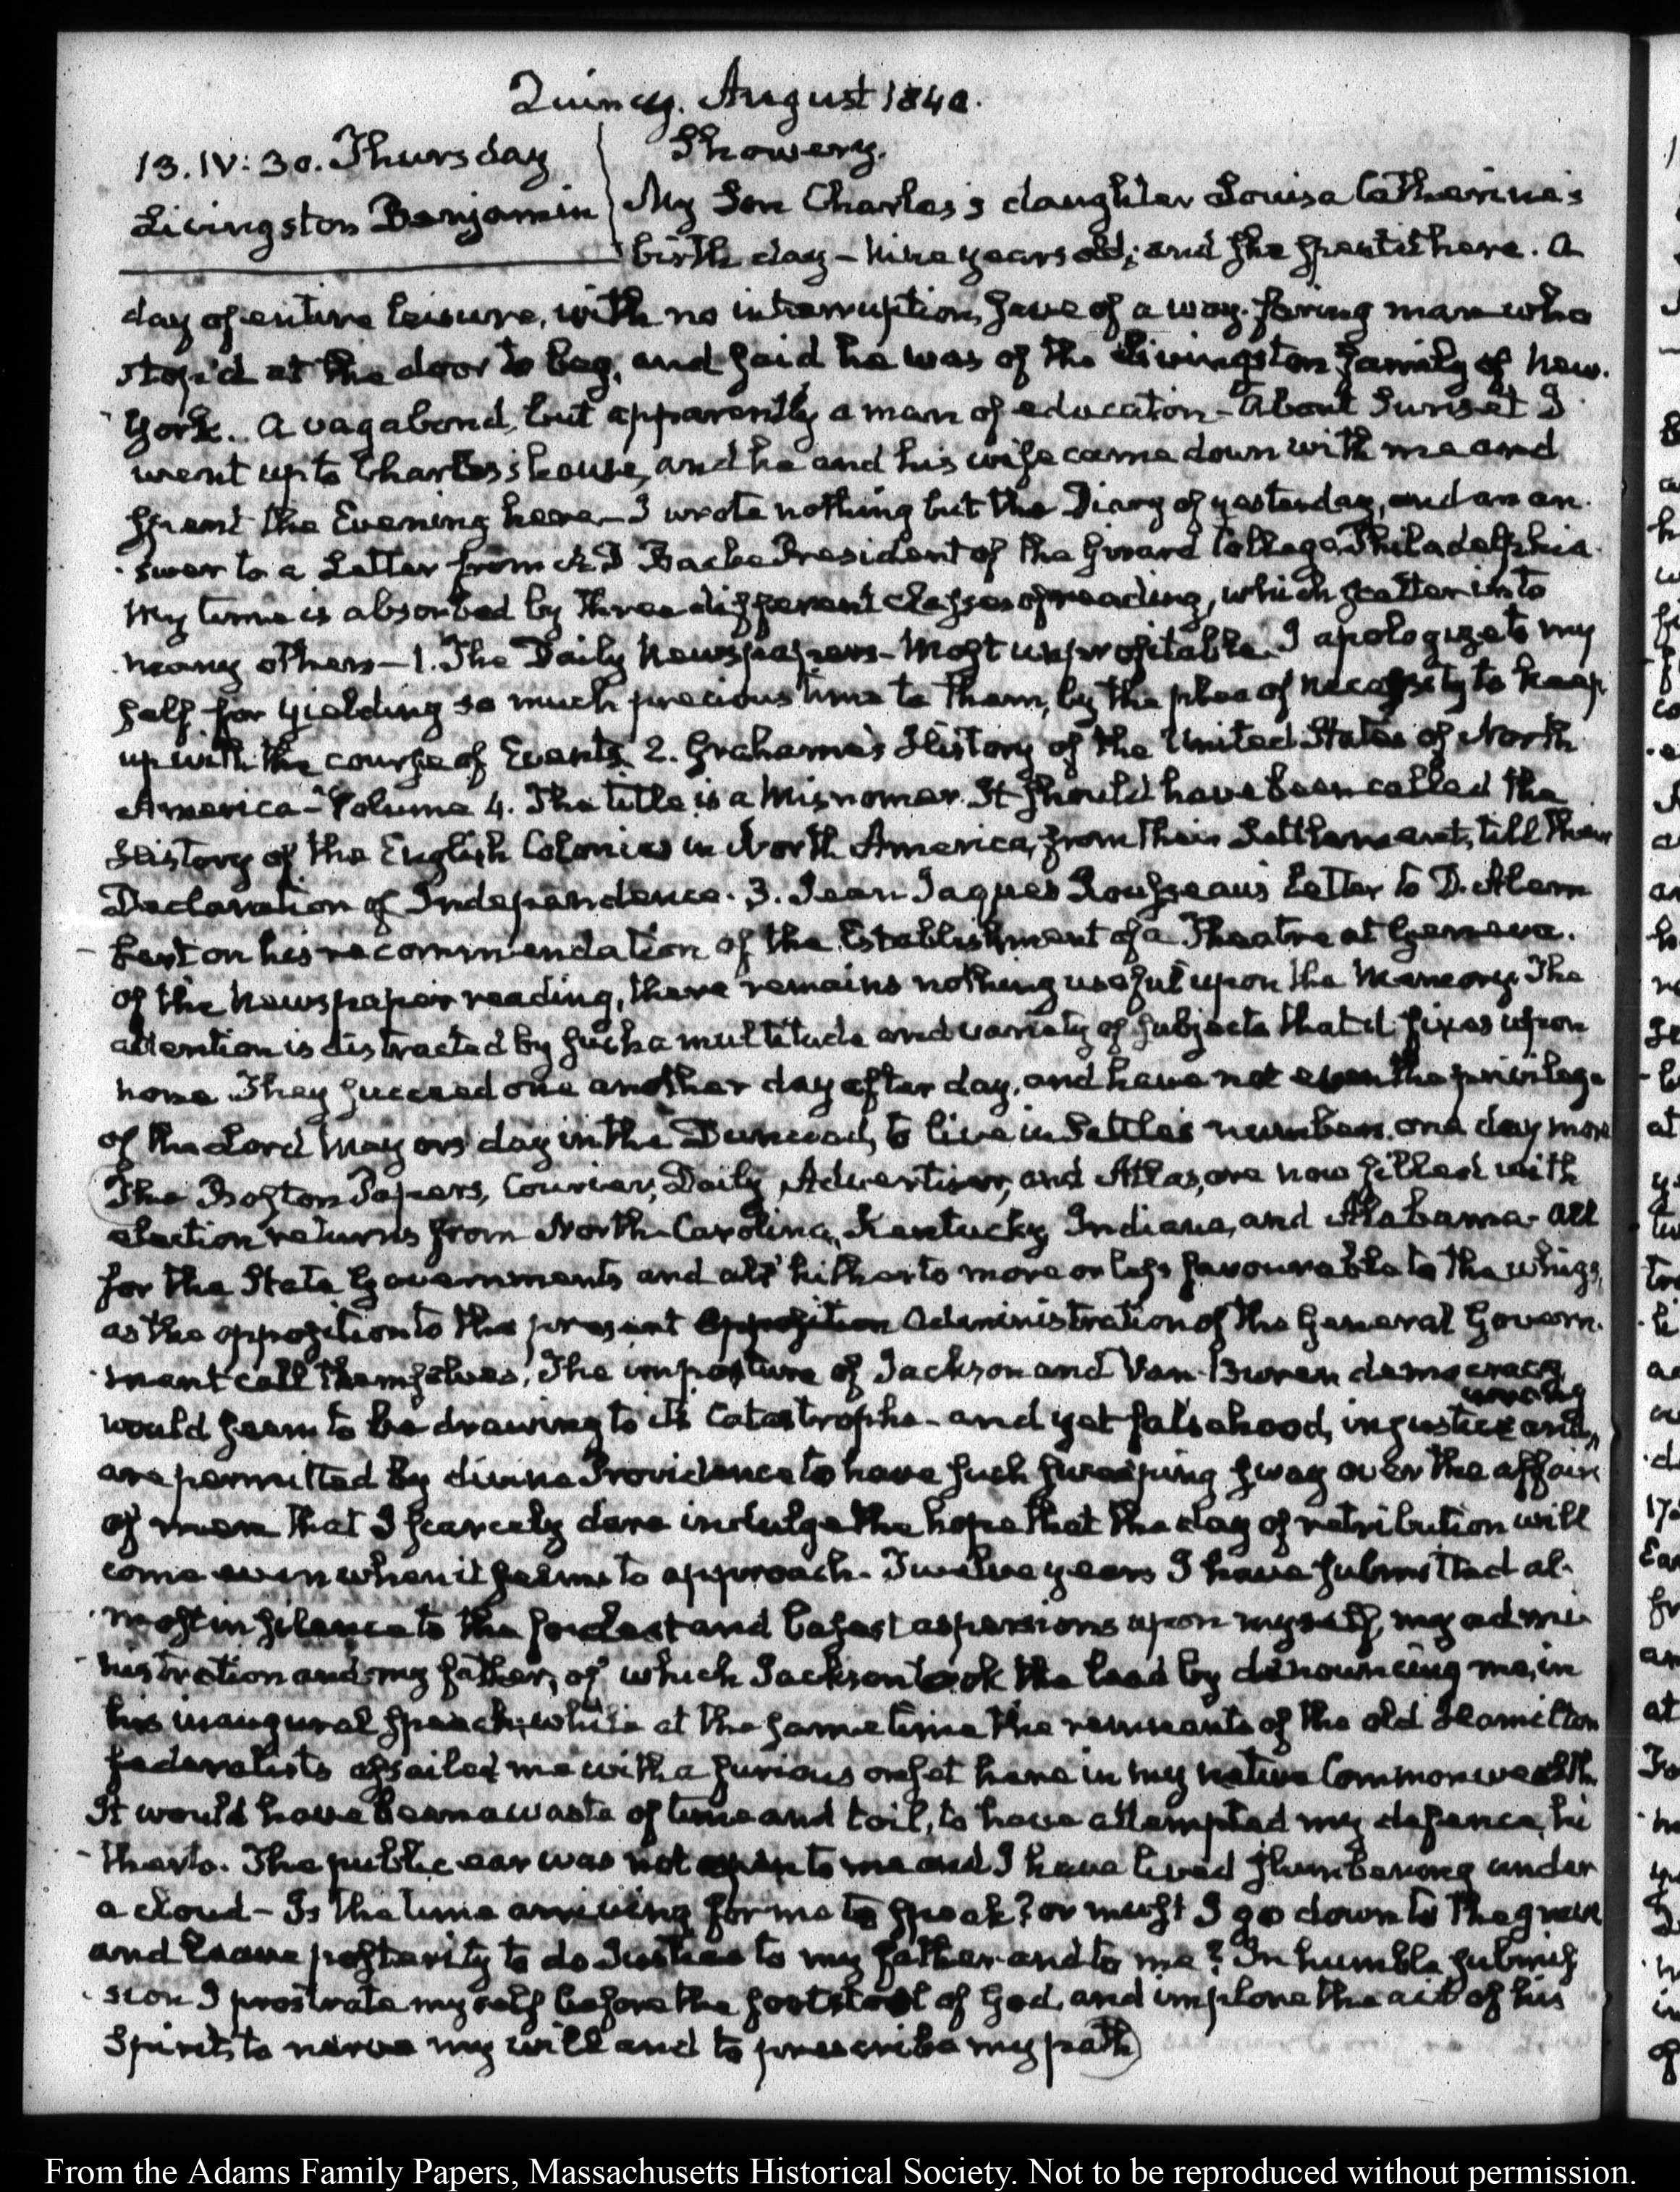 Quincy. August 1840.
13. IV: 30. Thursday
Livingston Benjamin
Showery.
My Son Charles's daughter Louisa Catherine's
birth day – Nine years old; and she spent it here. A
day of entire leisure, with no interruption, save of a way-faring man who
stop'd at the door to beg, and said he was of the Livingston family of New-
York. A vagabond, but apparently a man of education – About Sunset I
went up to Charles's house, and he and his wife came down with me and
spent the Evening here – I wrote nothing but the Diary of yesterday, and an an-
swer to a Letter from A D Bache President of the Girard College, Philadelphia.
My time is absorbed by three different classes of reading, which scatter into
many others – 1. The Daily Newspapers – Most unprofitable. I apologize to my
self for yielding so much precious time to them, by the plea of necessity to keep
up with the course of Events. 2. Grahame's History of the United States of North
America – Volume 4. The title is a Misnomer. It should have been called the
History of the English Colonies in North America, from their Settlement, till their
Declaration of Independence. 3. Jean Jaques Rousseau's Letter to D'Alem
bert on his recommendation of the Establishment of a Theatre at Geneva.
Of the Newspaper reading, there remains nothing useful upon the Memory. The
attention is distracted by such a multitude and variety of subjects that it fixes upon
none. They succeed one another day after day, and have not even the privilege
of the Lord Mayors day in the Dunciad, to live in Settle's numbers, one day more
The Boston Papers, Courier, Daily Advertiser, and Atlas, are now filled with
election returns from North-Carolina, Kentucky, Indiana, and Alabama – all
for the State Governments and all hitherto more or less favourable to the Whigs,
as the opposition to the present Opposition Administration of the General Govern-
ment call themselves. The imposture of Jackson and Van-Buren democracy
would seem to be drawing to its Catastrophe – and yet falsehood, injustice and
wrong
are permitted by divine Providence to have such sweeping sway over the affairs
of men that I scarcely dare indulge the hope that the day of retribution will
come even when it seems to approach. Twelve years I have submitted al-
most in silence to the foulest and basest aspersions upon myself, my admi-
nistration and my father, of which Jackson took the lead by denouncing me, in
his inaugural speech; while at the same time the remnants of the old Hamilton
federalists assailed me with a furious onset here in my native Commonwealth.
It would have been a waste of time and toil, to have attempted my defence, hi
therto. The public ear was not open to me and I have lived slumbering under
a cloud – Is the time arriving for me to speak? or must I go down to the grave
and leave posterity to do Justice to my father and to me? In humble submis
sion I prostrate myself before the footstool of God, and implore the aid of his
Spirit, to nerve my will and to prescribe my path
From the Adams Family Papers, Massachusetts Historical Society. Not to be reproduced without permission.